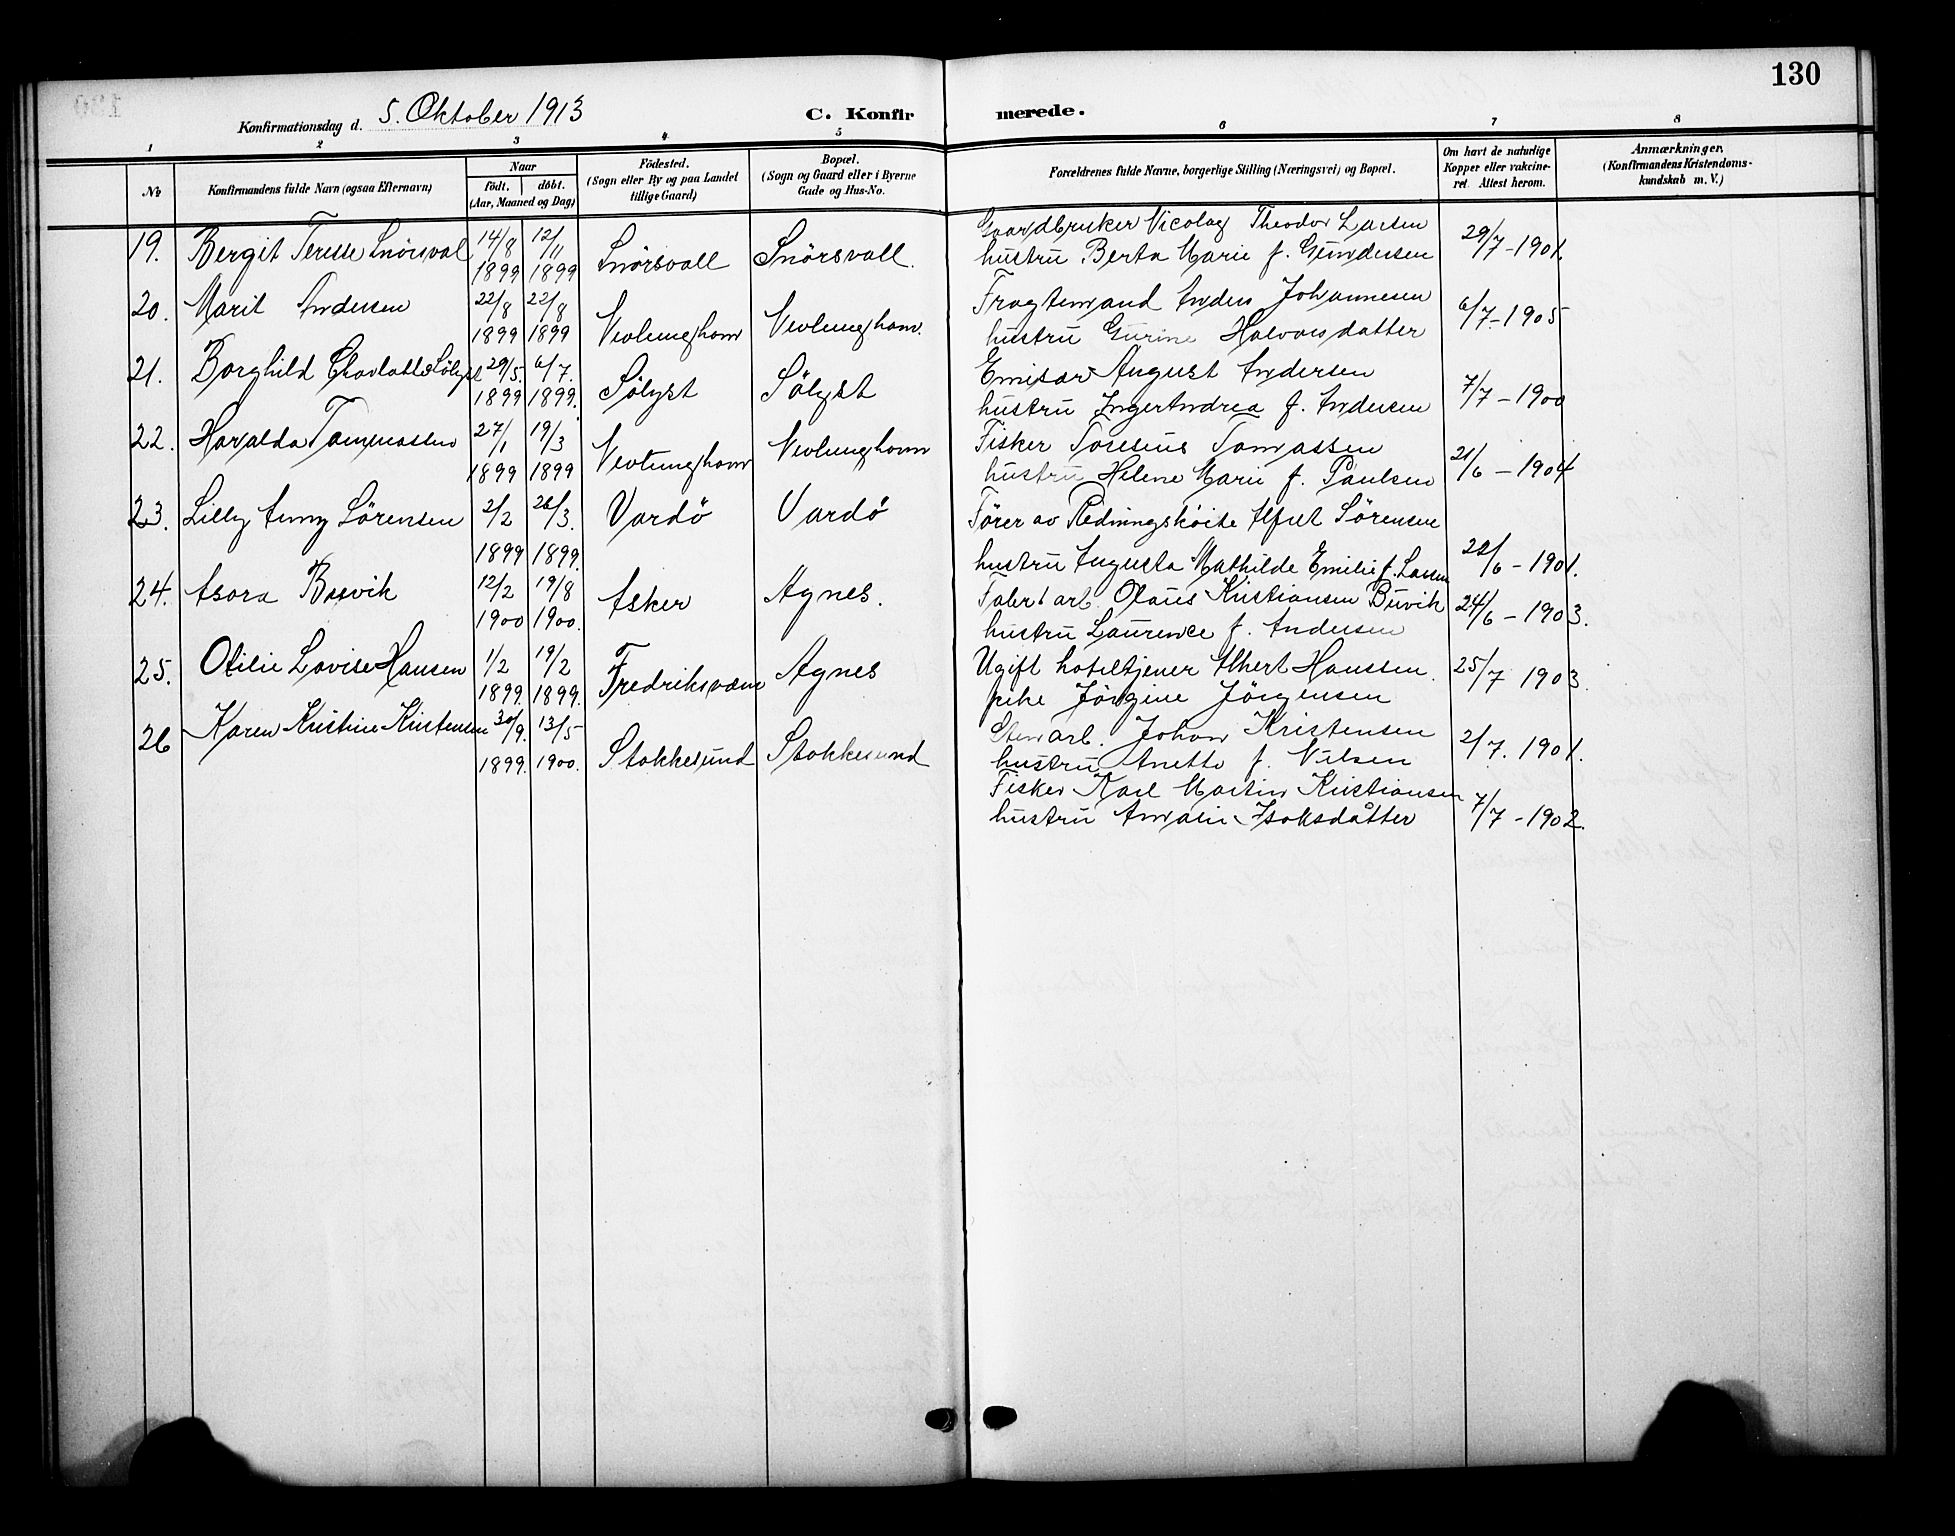 130
Konfirmationsdag d. 5. Oktober 1913
C. Konfirmerede.
1 2 3 4 5 6 7 8
No Konfirmandens fulde Navn (ogsaa Efternavn)
Naar
født. døbt.
(Aar, Maaned og Dag)
Fødested.
(Sogn eller By og paa Landet
tillige Gaard)
Bopæl.
(Sogn og Gaard eller i Byerne
Gade og Hus-No.
Forældrenes fulde Navne, borgerlige Stilling (Næringsvei) og Bopæl.
Om havt de naturlige
Kopper eller vakcine-
ret. Attest herom.
Anmærkninger.
(Konfirmandens Kristendoms-
kundskab m. V.)
19. Bergit Terese Snörsval 14/8 1899 12/11 1899 Snörsvall Snörsvall.
Gaardbruker Nicolay Theodor Larsen
hustru Berta Marie f. Gundersen 29/7-1901
20. Marit Andersen 22/8 1899 22/8 1899 Nevlunghavn Nevlunghavn.
Fragtemand Anders Johannesen
hustru Gurine Halvorsdatter 6/7-1905
21. Borghild Charlotte Sölyst 29/5. 1899 6/7. 1899. Sölyst Sölyst
Emisær August Andersen
hustru Inger Andrea f. Andersen 7/7-1900
22. Haralda Tommassen 27/1 1899 19/3 1899 Nevlunghavn Nevlunghavn
Fisker Tomassen
hustru Helene Marie f. Paulsen 21/6-1904
23. Lilly Anny Sörensen 2/2 1899 26/3. 1899. Vardö Vardö
Förer av Redningsköite Alfret Sörensen
hustru Augusta Mathilde Emilie f. Larsen 22/6-1901.
24. Asora Buvik 12/2 1900 19/8 1900. Asker Agnes.
Fabrt arb. Olaus Kristiansen Buvik
hustru Laurence f. Andersen 24/6-1903.
25. Otilie Lovise Hansen 1/2 1899. 19/2 1899. Fredriksværn Agnes
Ugift hoteltjener Albert Hanssen.
pike Jörgine Jörgensen 25/7 1903.
26 Karen Kristine Kristensen 30/9. 1899. 13/5 1900. Stokkesund Stokkesund
Stenarb. Johan Kristensen
hustru Anette f. Nilsen 2/7. 1901.
Fisker Karl Martin Kristiansen
hustru Amalie Isaksdatter 7/7-1902.